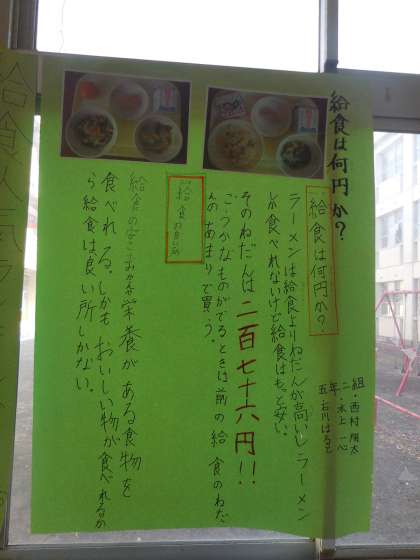 給食は何円か?
五年二組・西村 翔太
水上 一心
石川はると
給食は何円か?
ラーメンは給食よりねだんが高いしラーメン
しか食べれないけど給食はもっと安い。
そのねだんは二百七十六円!!
ごうかなものがでるときは前の給食のねだ
んのあまりで買う。
給食の良い所
給食の良い所は栄養がある食物を
食べれる、しかもおいしい物が食べれるか
ら給食は良い所しかない。
給食人気ラン